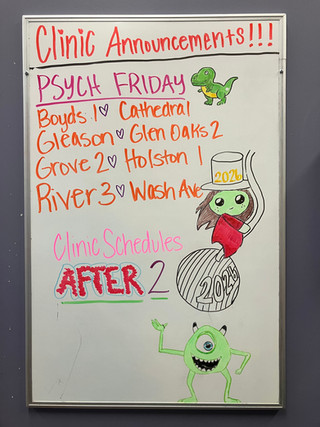 Clinic Announcements!!!
PSYCH FRIDAY
Boyds 1 ♡ Cathedral
Gleason ♡ Glen Oaks 2
Grove 2 ♡ Holston 1
River 3 ♡ Wash Ave
2026
Clinic Schedules
AFTER 2
2026